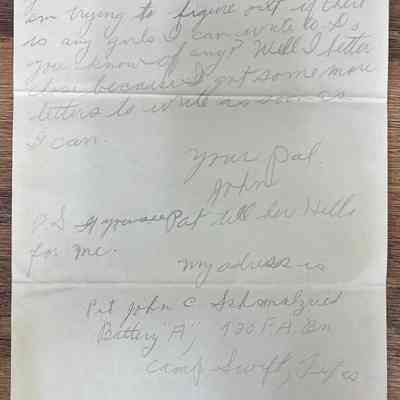 im trying to figure out if there
is any girls I can write to. Do
you know of any? Well I better
close because I got some more
letters to write as soon as
I can.
Your Pal.
John
P.S. If you see Pat tell her Hello
for me.
My adress is
Pvt John C Schmalzried
Battery "A", 730 F.A. Bn
Camp Swift, Texas